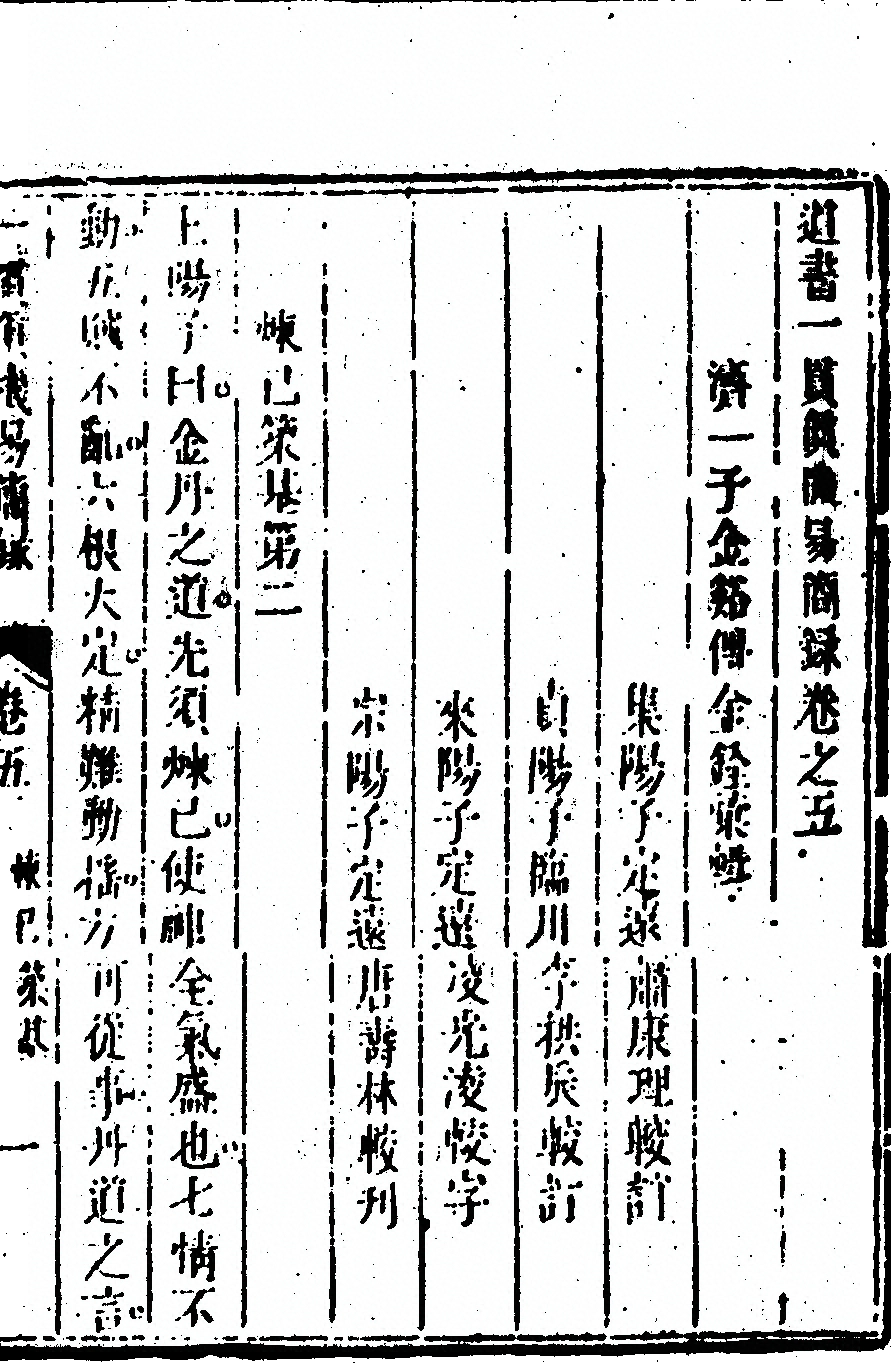 道書一貫真機易簡錄卷之五
濟一子金谿傅金銓彙輯
集陽子定遠蕭康理較訂
貞陽子臨川李拱辰較訂
來陽子定遠凌光凌較字
宗陽子定遠唐壽林較刊
煉己築基第二
上陽子曰金丹之道先須煉己使神全氣盛也七情不
動五賊不亂六根大定精難動搖方可從事丹道之言
一貫真機易簡錄 卷五 煉己築基 一